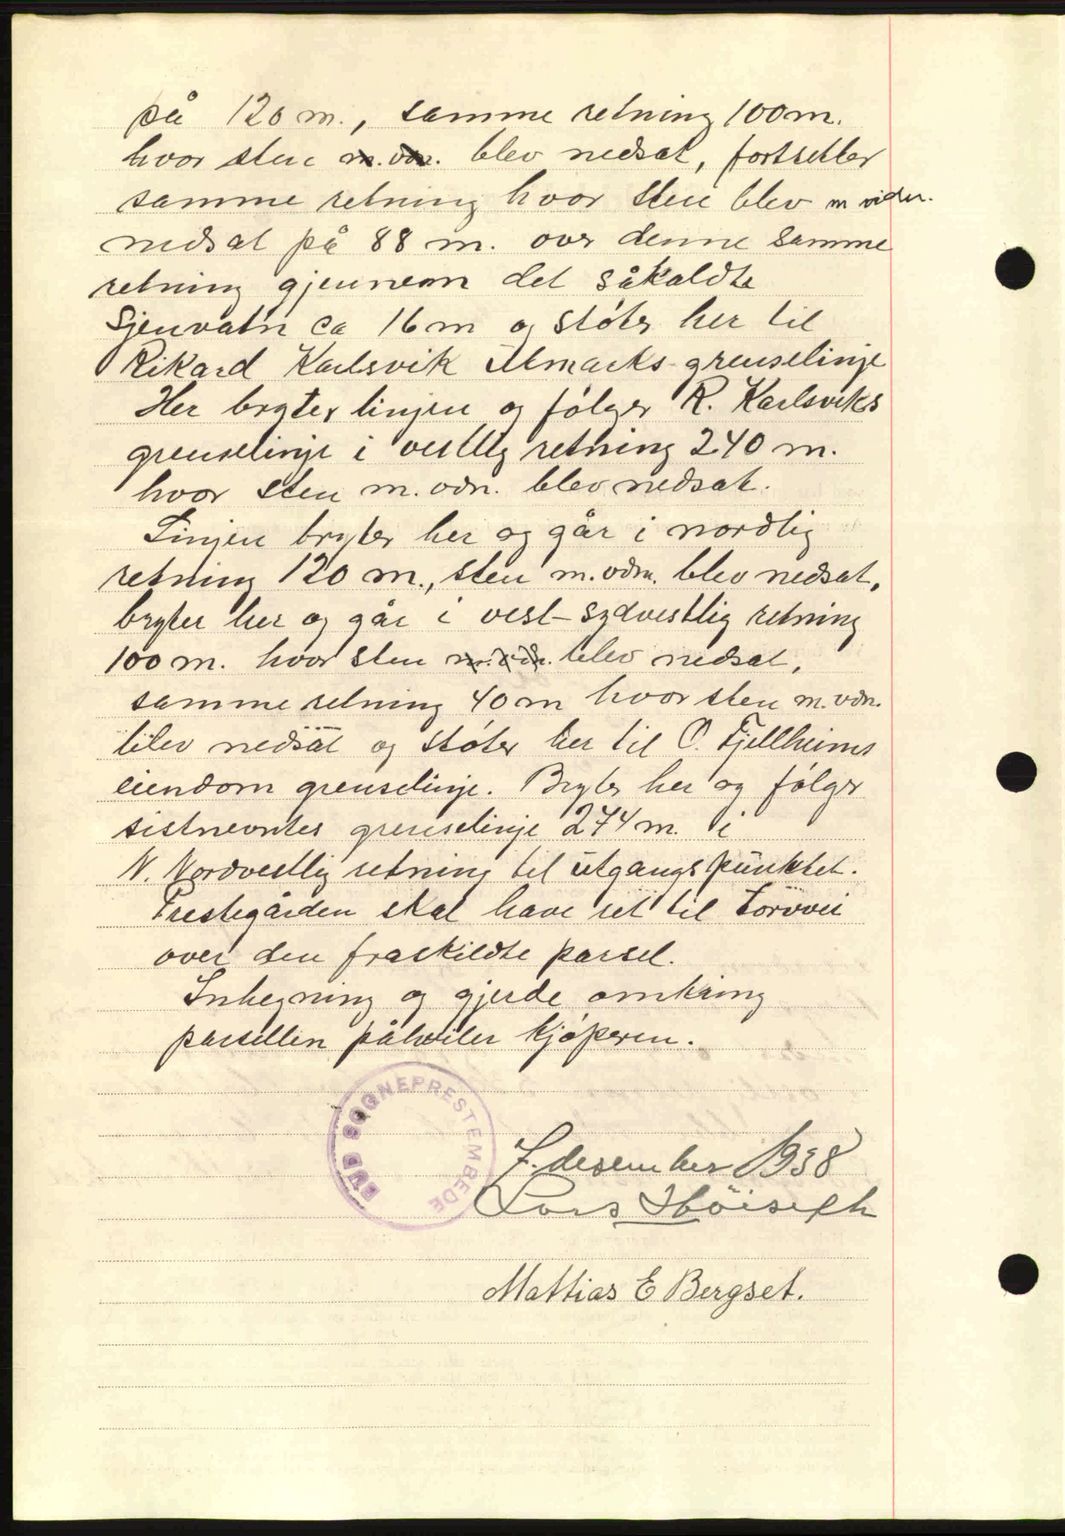 på 120 m., samme retning 100 m.
hvor sten m. vdn. blev nedsat, fortsetter
samme retning hvor sten blev m viden.
nedsat på 88 m. over denne samme
retning gjennem det såkaldte
Sjenvatn ca 16 m og støter her til
Rikard Karlsvik Utmarks-grenselinje
Her bryter linjen og følger R. Karlsviks
grenselinje i vestlig retning 240 m.
hvor sten m. vdn. blev nedsat.
Linjen bryter her og går i nordlig
retning 120 m., sten m. vdn. blev nedsat,
bryter her og går i vest-sydvestlig retning
100 m. hvor sten m. vdn. blev nedsat,
samme retning 40 m hvor sten m. vdn.
blev nedsat og støter her til O. Fjellheims
eiendom grenselinje. Bryter her og følger
sistnevntes grenselinje 274 m. i
N. Nordvestlig retning til utgangspunktet.
Prestegården skal have ret til torvvei
over den fraskildte parsel.
Inhegning og gjerde omkring
parsellen påhviler kjøperen.
BUD SOGNEPRESTEMBEDE
7. desember 1938
Lars
Mattias E Bergset.